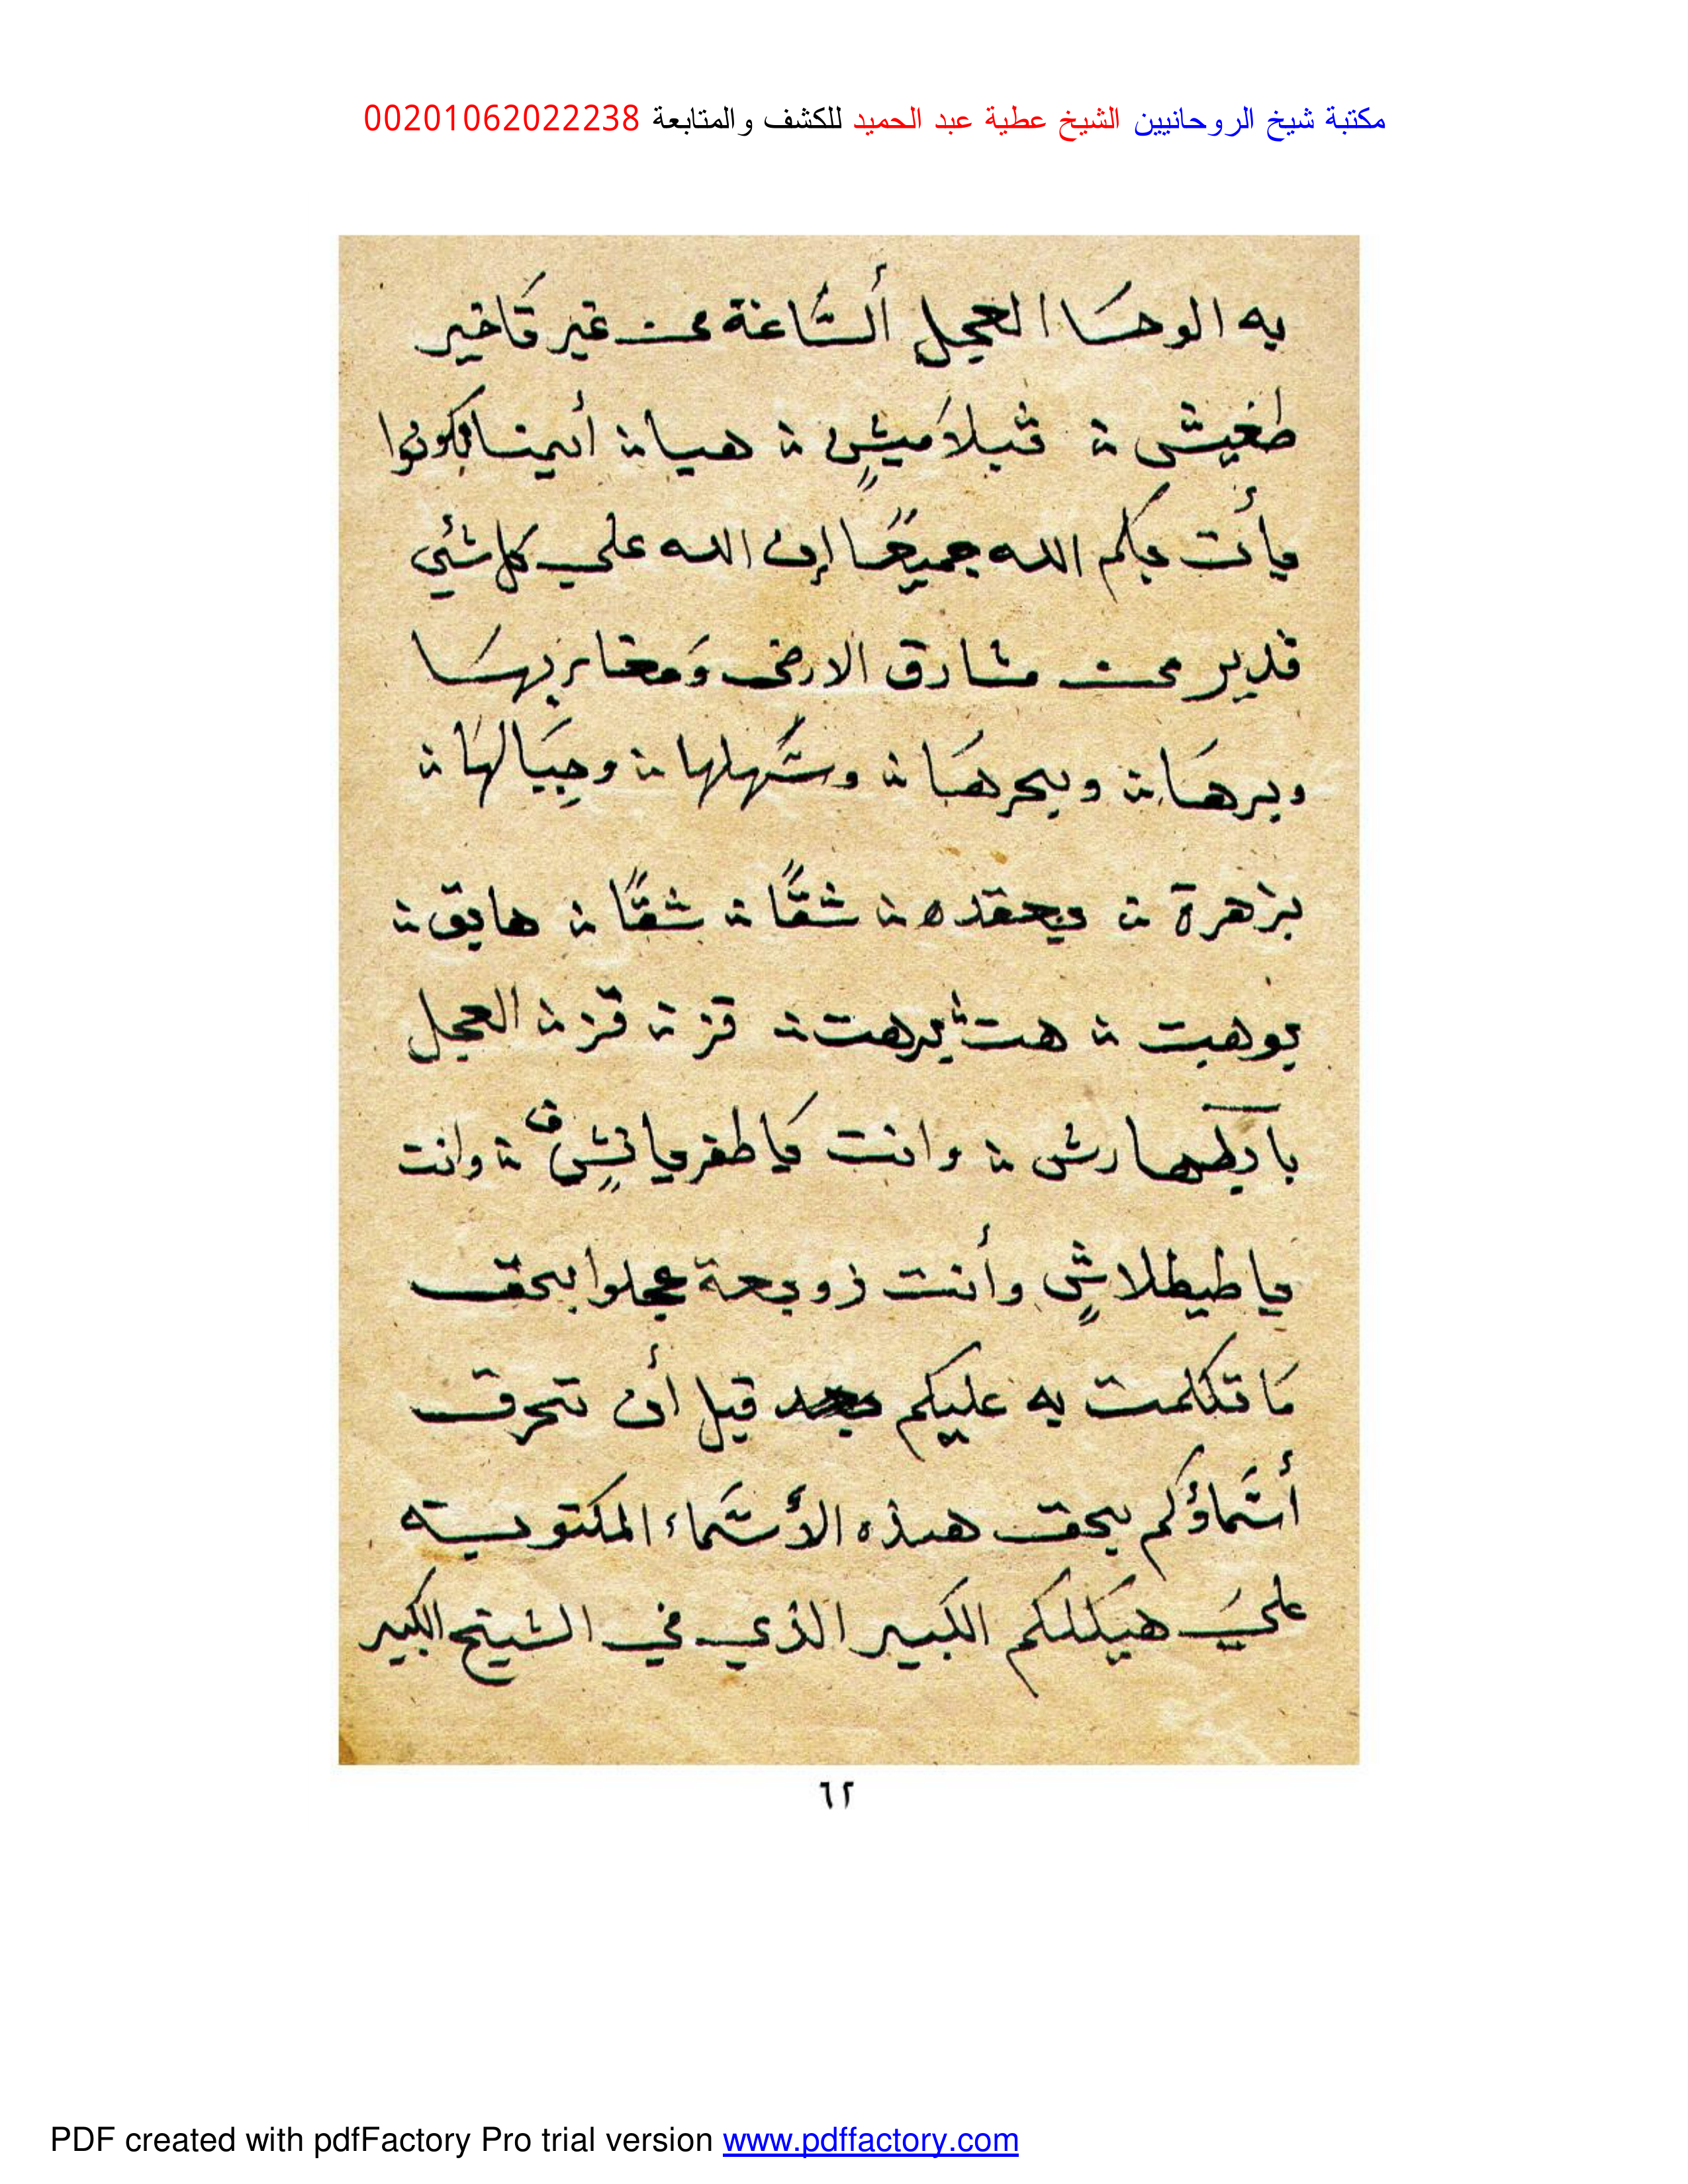 مكتبة شيخ الروحانيين الشيخ عطية عبد الحميد للكشف والمتابعة 00201062022238
به الوحَا العجل ألسَّاعَة من غير تَاخير
طغيش ؛ هيا ؛ أينما تكونوا
يأت بكم الله جميعًا إن الله علي كل شئي
قدير من مشارق الارض وَمغاربهَا
وبرهَا ؛ وبحرهَا ؛ وسَهلها ؛ وجِبَالهَا ؛
بزهرة ؛ ؛ شقًّا ؛ شقًّا ؛ هايق ؛
يوهبت ؛ هت ؛ يرهت ؛ قز ؛ قز ؛ العجل
؛ وانت ؛ وانت
يا طيطلاشٍ وأنت زوبعة عجلوا بحق
مَا تكلمت به عليكم قبل أن تحرق
أسَماؤكم بحق هذه الأسَماء المكتوبه
عليَ هيَكلكم الكبير الذي في الكبير
٦٢
PDF created with pdfFactory Pro trial version www.pdffactory.com